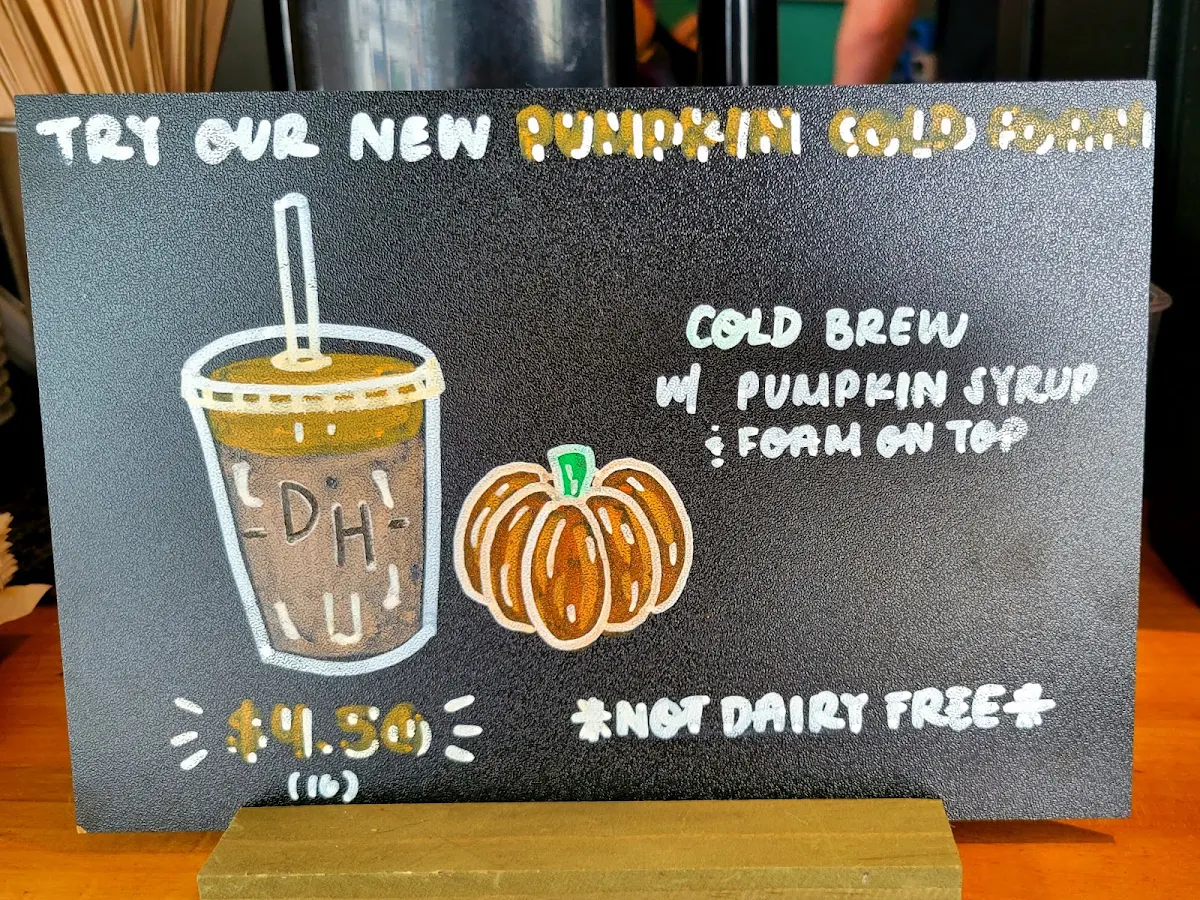 TRY OUR NEW PUMPKIN COLD FOAM
COLD BREW
w/ PUMPKIN SYRUP
& FOAM ON TOP
DH
$4.50
(16)
*NOT DAIRY FREE*